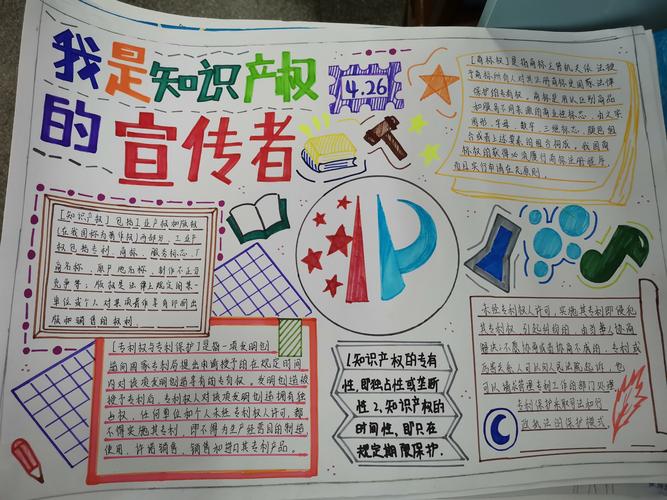 我是知识产权
的宣传者
4.26
[商标权]是指商标主管机关依法授
予商标所有人对其注册商标受国家法律
保护的专有权。商标是用以区别商品
和服务不同来源的商业性标志,由文字
图形、字母、数字、三维标志、颜色组
合或者上述要素的组合构成。我国商
标权的获得必须履行商标注册程序,
而且实行申请在先原则.
[知识产权]包括工业产权和版权
(在我国称为著作权)两部分,工业产
权包括专利、商标、服务标志、厂
商名称、原产地名称、制作不正当
竞争等;版权是法律上规定的某一
单位或个人对某项著作享有印刷出
版和销售的权利.
IP
[专利权与专利保护]是指一项发明创
造向国家专利局提出申请授予的在规定时间
内对该项发明创造享有的专有权,发明创造被
授予专利后,专利权人对该项发明创造拥有独
占权,任何单位和个人未经专利权人许可,都
不得实施其专利,即不得为生产经营目的制造
使用、许诺销售、销售和进口其专利产品。
1.知识产权的专有
性,即独占性或垄断
性;2.知识产权的
时间性,即只在
规定期限保护.
未经专利权人许可,实施其专利即侵犯
其专利权,引起纠纷的,由当事人协商
解决;不愿协商或者协商不成的,专利权
利害关系人可以向人民法院起诉,也
可以请求管理专利工作的部门处理,
专利保护采取司法和行
政执法的保护模式.